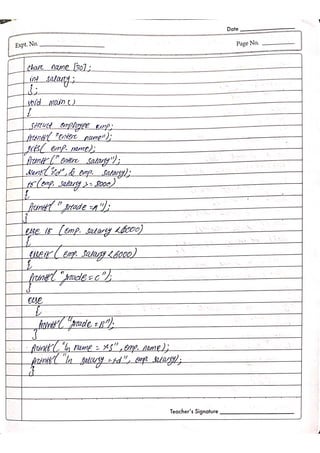 Date
Expt. No.
Page No.
char name [30];
int salary;
};
void main ()
{
struct employee emp;
printf("enter name");
gets( emp. name);
printf("enter salary");
scanf("%d", & emp. salary);
if (emp. salary >= 8000)
{
printf(" grade =A");
}
else if (emp. salary <8000)
{
else if ( emp. salary <6000)
{
printf("grade = C");
}
else
{
printf("grade = B");
}
printf( "\n name = %s", emp. name);
printf( "\n salary = %d", emp. salary);
}
Teacher's Signature